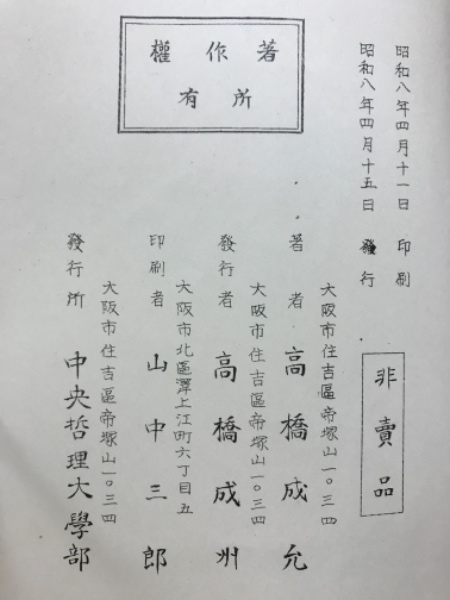 昭和八年四月十一日 印刷
昭和八年四月十五日 發行
非賣品
著作權
所有
大阪市住吉區帝塚山一〇三四
著者 高橋成允
大阪市住吉區帝塚山一〇三四
發行者 高橋成州
大阪市北區澤上江町六丁目五
印刷者 山中三郎
大阪市住吉區帝塚山一〇三四
發行所 中央哲理大學部